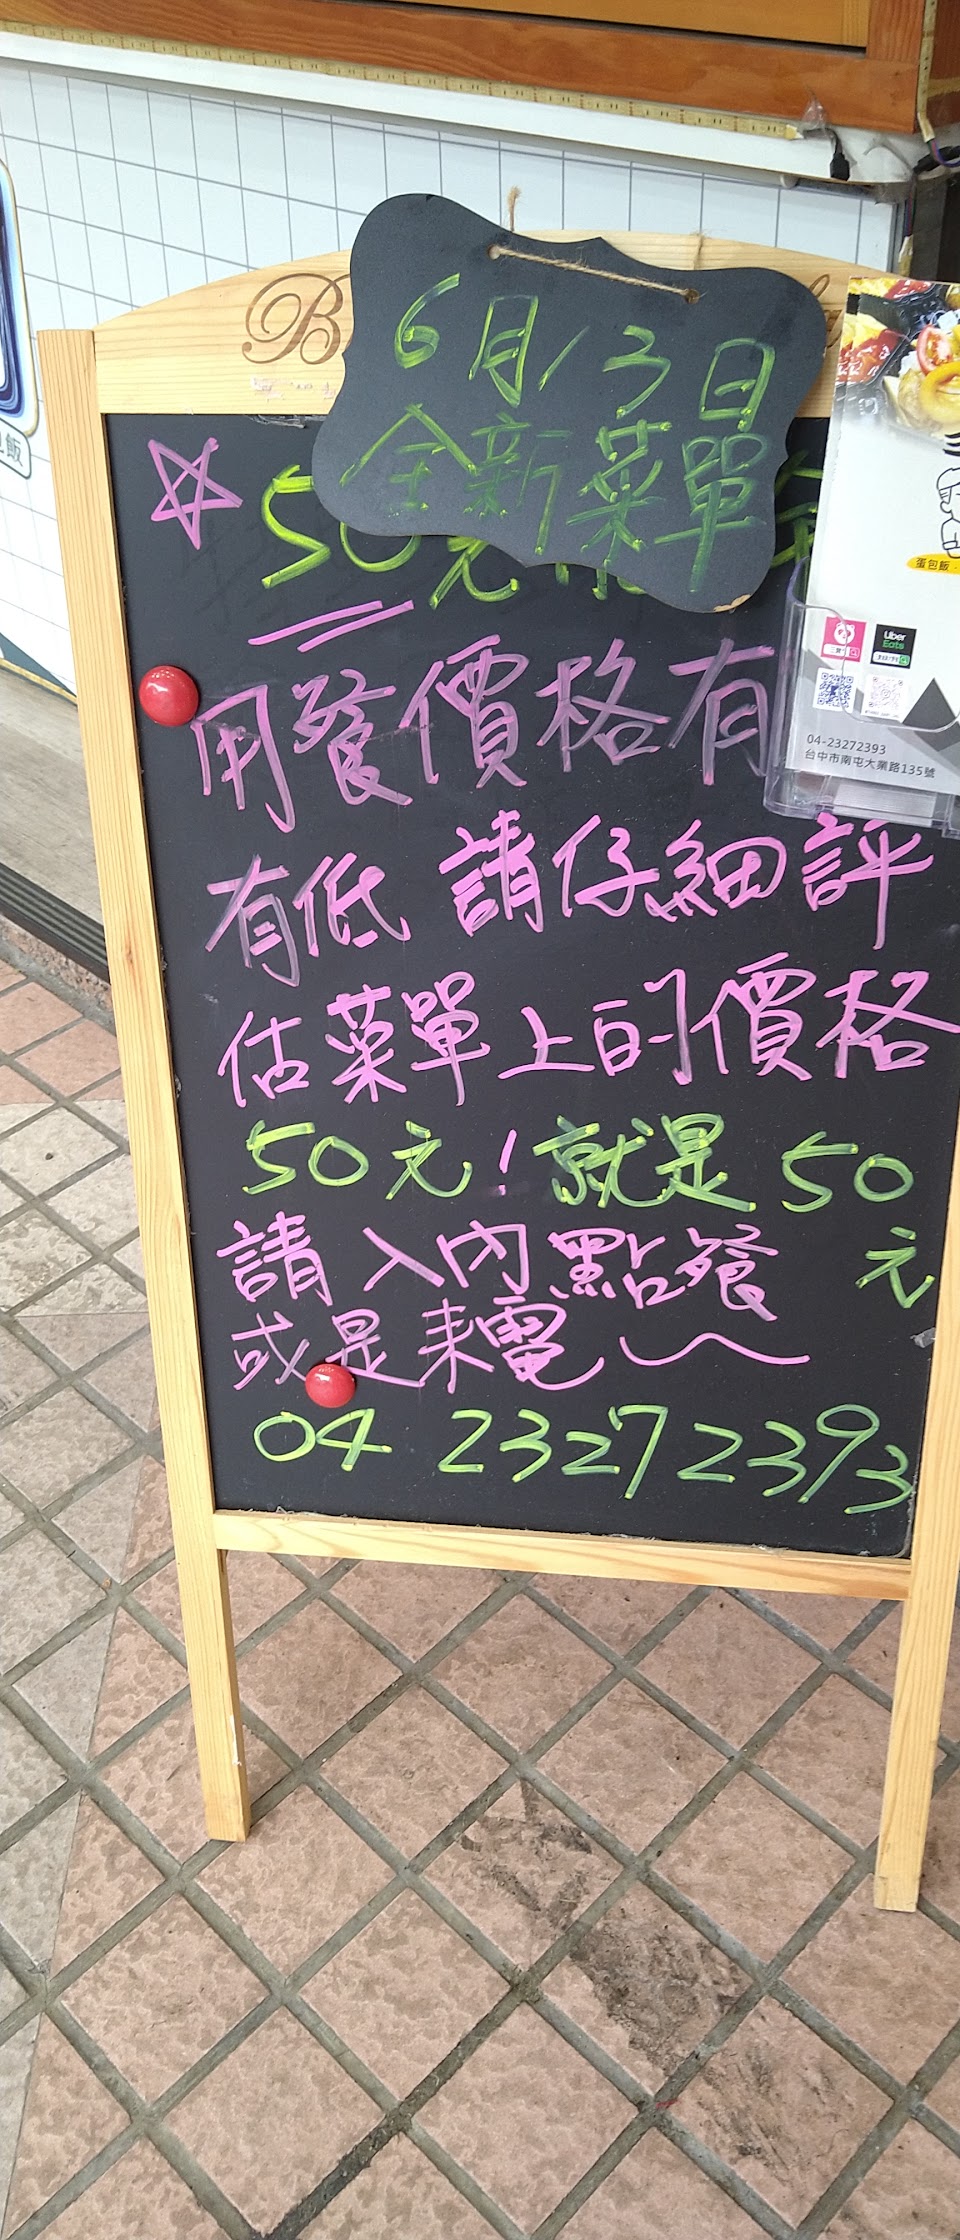 6月13日
全新菜單
50元
用餐價格有
有低 請仔細評
估菜單上的價格
50元!就是50
元
請入內點餐
或是來電
04 2327 2393
蛋包飯
Uber
Eats
04-23272393
台中市南屯大業路135號
包飯
B